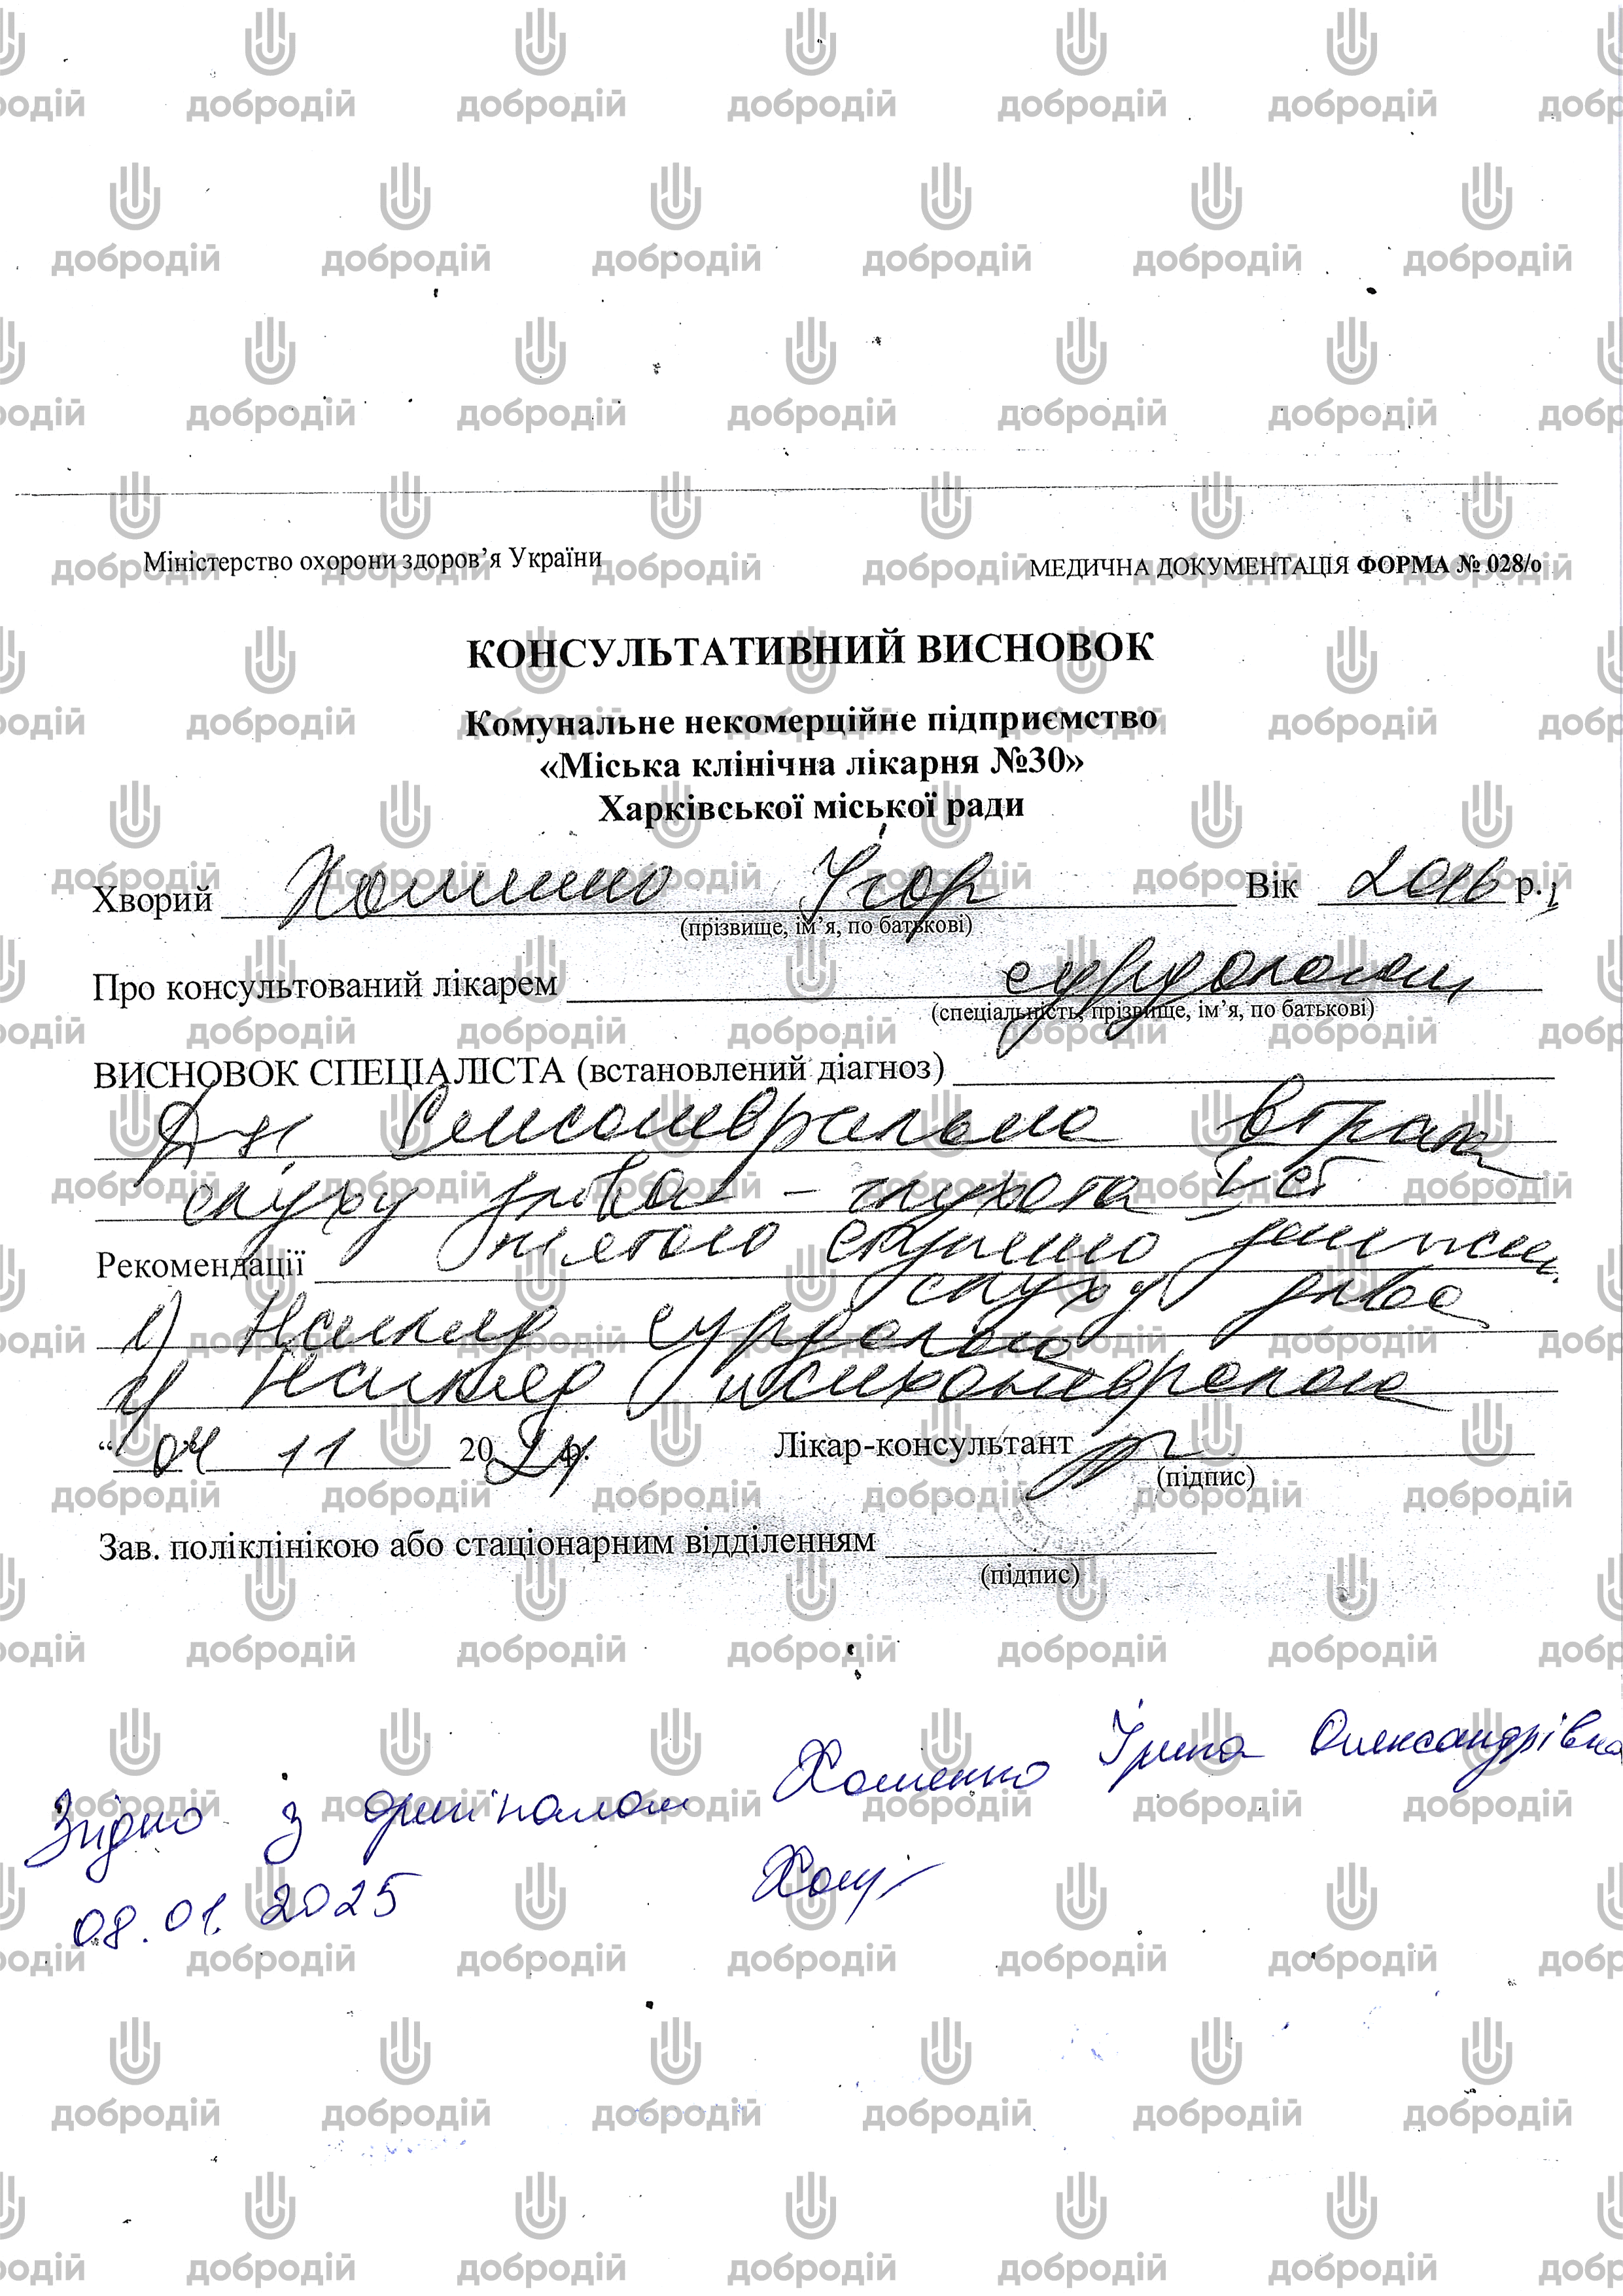 Міністерство охорони здоров’я України
МЕДИЧНА ДОКУМЕНТАЦІЯ ФОРМА № 028/о
КОНСУЛЬТАТИВНИЙ ВИСНОВОК
Комунальне некомерційне підприємство
«Міська клінічна лікарня №30»
Харківської міської ради
Хворий Хоменко Ігор Вік 2016 р.
(прізвище, ім’я, по батькові)
Про консультований лікарем сурдологом
(спеціальність, прізвище, ім’я, по батькові)
ВИСНОВОК СПЕЦІАЛІСТА (встановлений діагноз)
Сенсоневральна втрата
слуху - глухота
Рекомендації
слуху
1) Нагляд сурдолога
2) Нагляд психоневролога
“ 04 ” 11 2024 р. Лікар-консультант
(підпис)
Зав. поліклінікою або стаціонарним відділенням
(підпис)
Згідно з оригіналом Хоменко Ірина Олександрівна
08.01.2025
добродій